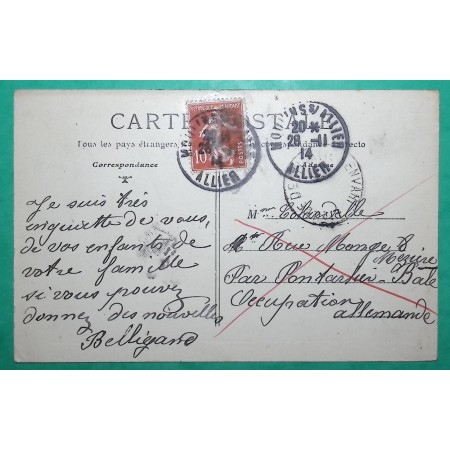 CARTE POSTALE
Tous les pays étrangers, recto
Correspondance
RÉPUBLIQUE FRANÇAISE
10
POSTES
ALLIER
MOULINS S/ ALLIER
20 *
29 - 11
14
ALLIER
ENVOYEUR
Je suis très
enquiette de vous,
de vos enfants de
votre famille
si vous pouvez
donnez des nouvelles
Belligand
Mme
Rue Monge 8
Mézière
Par Pontarlier - Bâle
Occupation
allemande